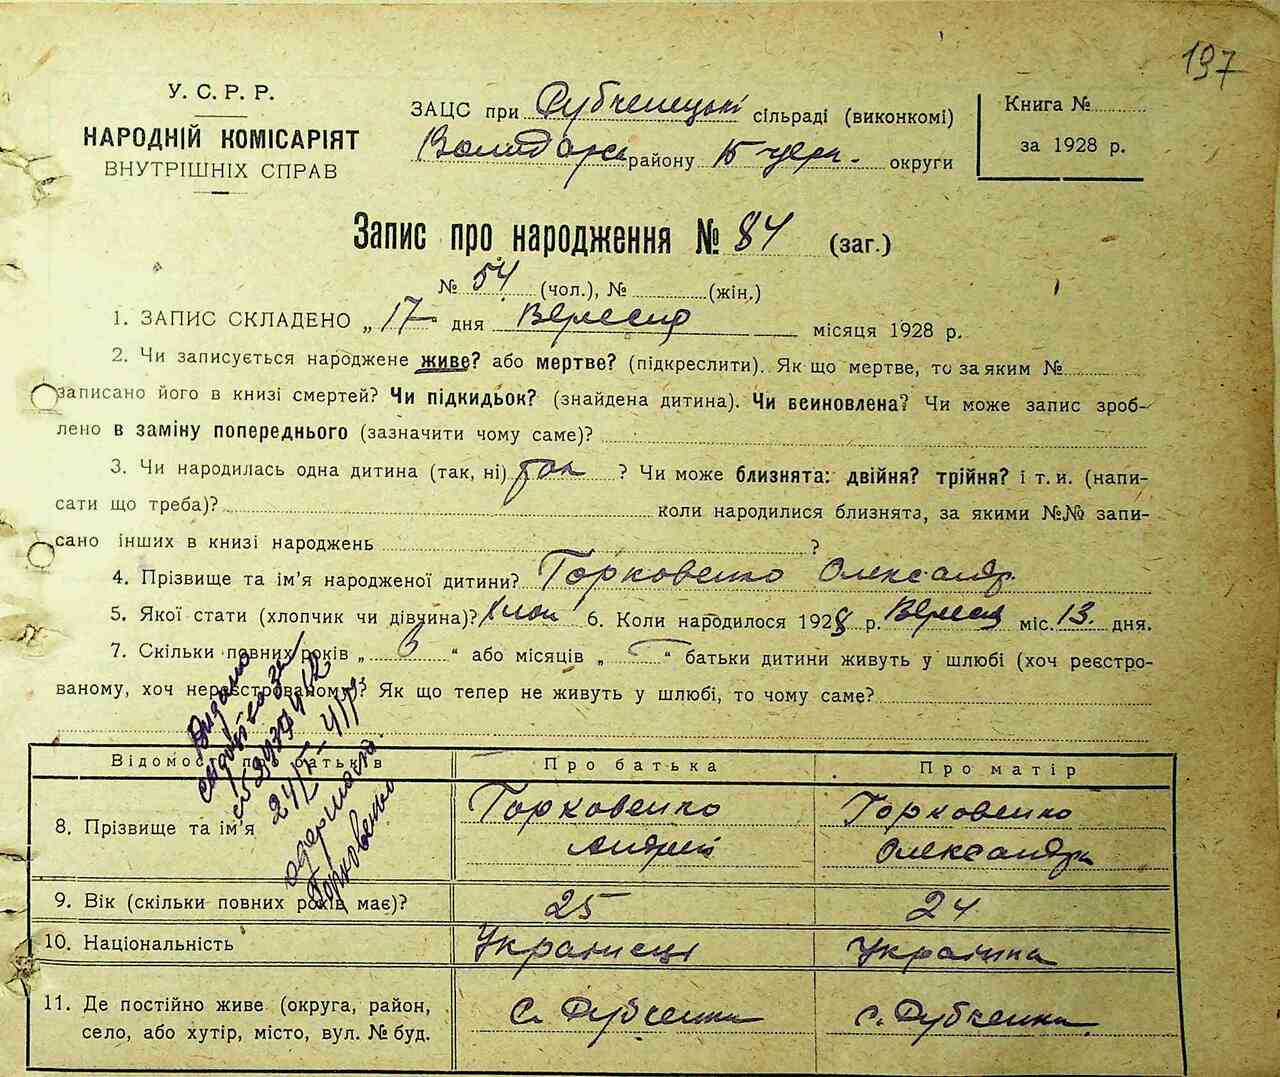 197
У. С. Р. Р.
НАРОДНІЙ КОМІСАРІЯТ
ВНУТРІШНІХ СПРАВ
ЗАЦС при Дубченецькі сільраді (виконкомі)
Володарс району Б-церк. округи
Книга №
за 1928 р.
Запис про народження № 84 (заг.)
№ 54 (чол.), № (жін.)
1. ЗАПИС СКЛАДЕНО „17" дня Вересня місяця 1928 р.
2. Чи записується народжене живе? або мертве? (підкреслити). Як що мертве, то за яким №
записано його в книзі смертей? Чи підкидьок? (знайдена дитина). Чи всиновлена? Чи може запис зроб-
лено в заміну попереднього (зазначити чому саме)?
3. Чи народилась одна дитина (так, ні) так ? Чи може близнята: двійня? трійня? і т. и. (напи-
сати що треба)? коли народилися близнята, за якими №№ запи-
сано інших в книзі народжень ?
4. Прізвище та ім'я народженої дитини? Горковенко Олександр
5. Якої стати (хлопчик чи дівчина)? Хлоп 6. Коли народилося 1928 р. Вересня міс. 13. дня.
7. Скільки повних років „ 6 " або місяців „ — " батьки дитини живуть у шлюбі (хоч реєстро-
ваному, хоч нереєстрованому)? Як що тепер не живуть у шлюбі, то чому саме?
Видано
24/V-41р
одержала
Горковенко
Відомості про батьків Про батька Про матір
8. Прізвище та ім'я Горковенко Андрій Горковенко Олександра
9. Вік (скільки повних років має)? 25 24
10. Національність Украінець Украінка
11. Де постійно живе (округа, район, с. Дубченки с. Дубченки
село, або хутір, місто, вул. № буд.